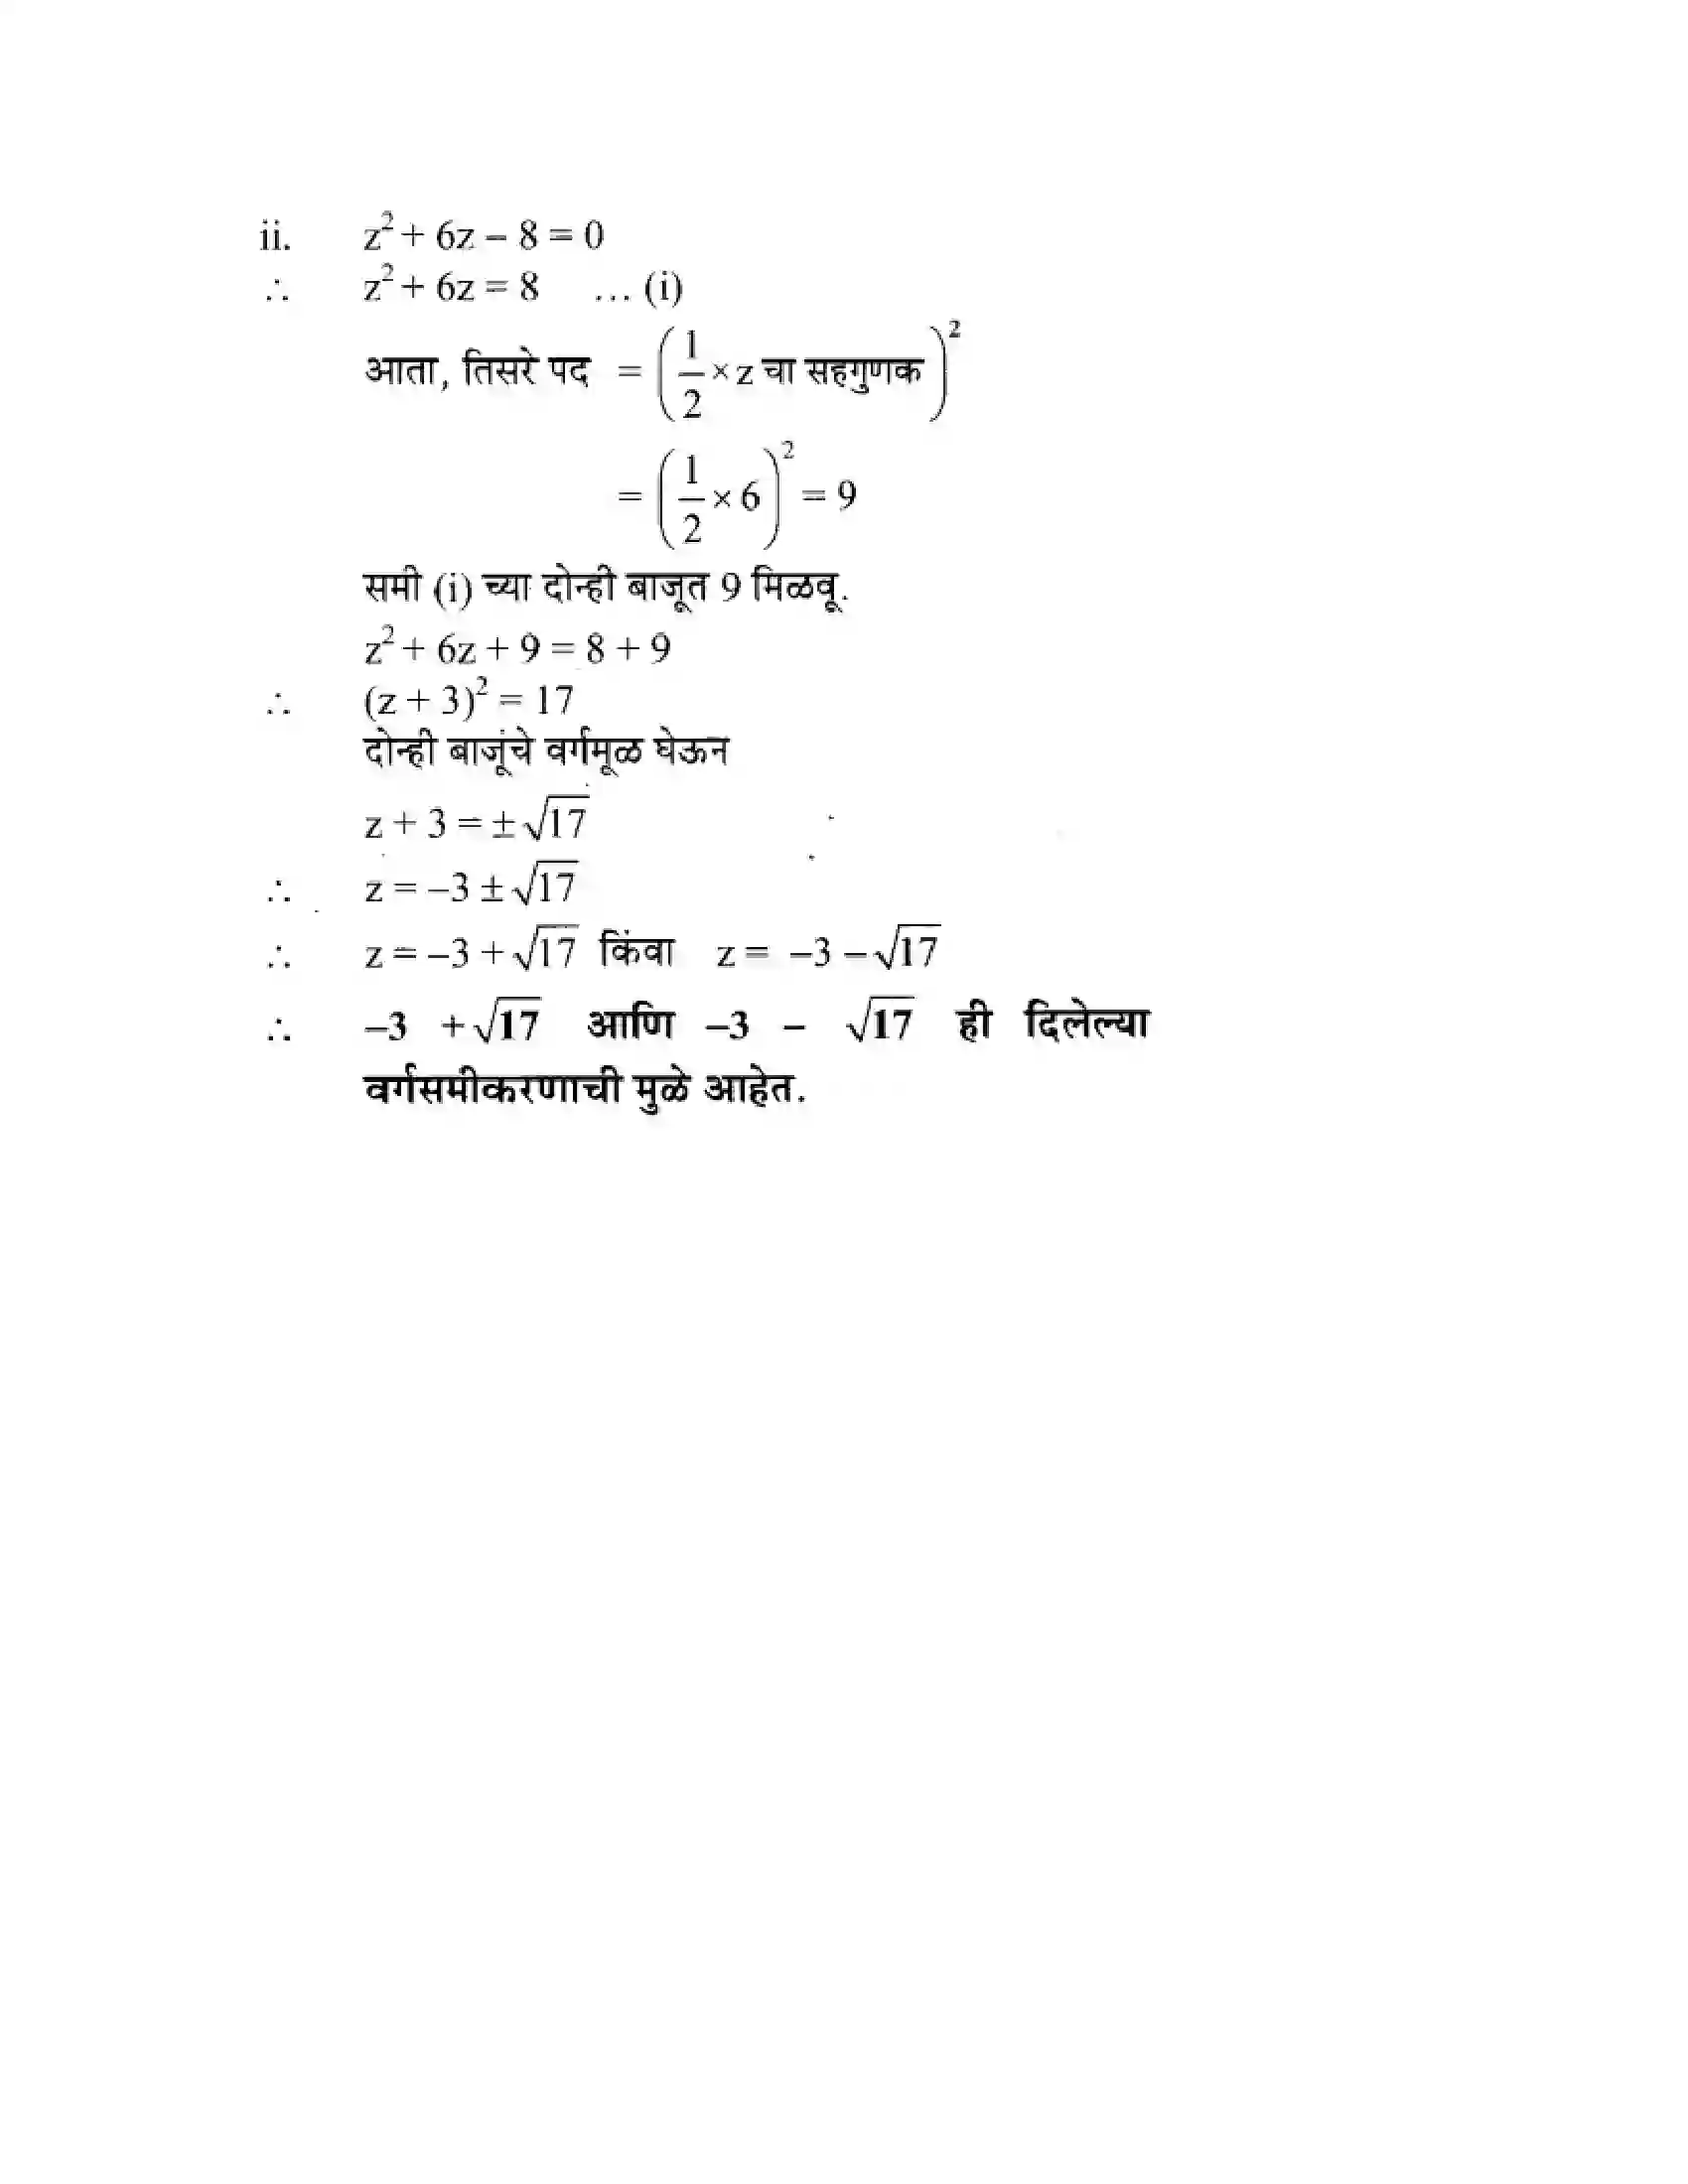 ii. z² + 6z – 8 = 0
∴ z² + 6z = 8 … (i)
आता, तिसरे पद = (1/2 × z चा सहगुणक)²
= (1/2 × 6)² = 9
समी (i) च्या दोन्ही बाजूत 9 मिळवू.
z² + 6z + 9 = 8 + 9
∴ (z + 3)² = 17
दोन्ही बाजूंचे वर्गमूळ घेऊन
z + 3 = ± √17
∴ z = –3 ± √17
∴ z = –3 + √17 किंवा z = –3 – √17
∴ –3 + √17 आणि –3 – √17 ही दिलेल्या
वर्गसमीकरणाची मुळे आहेत.